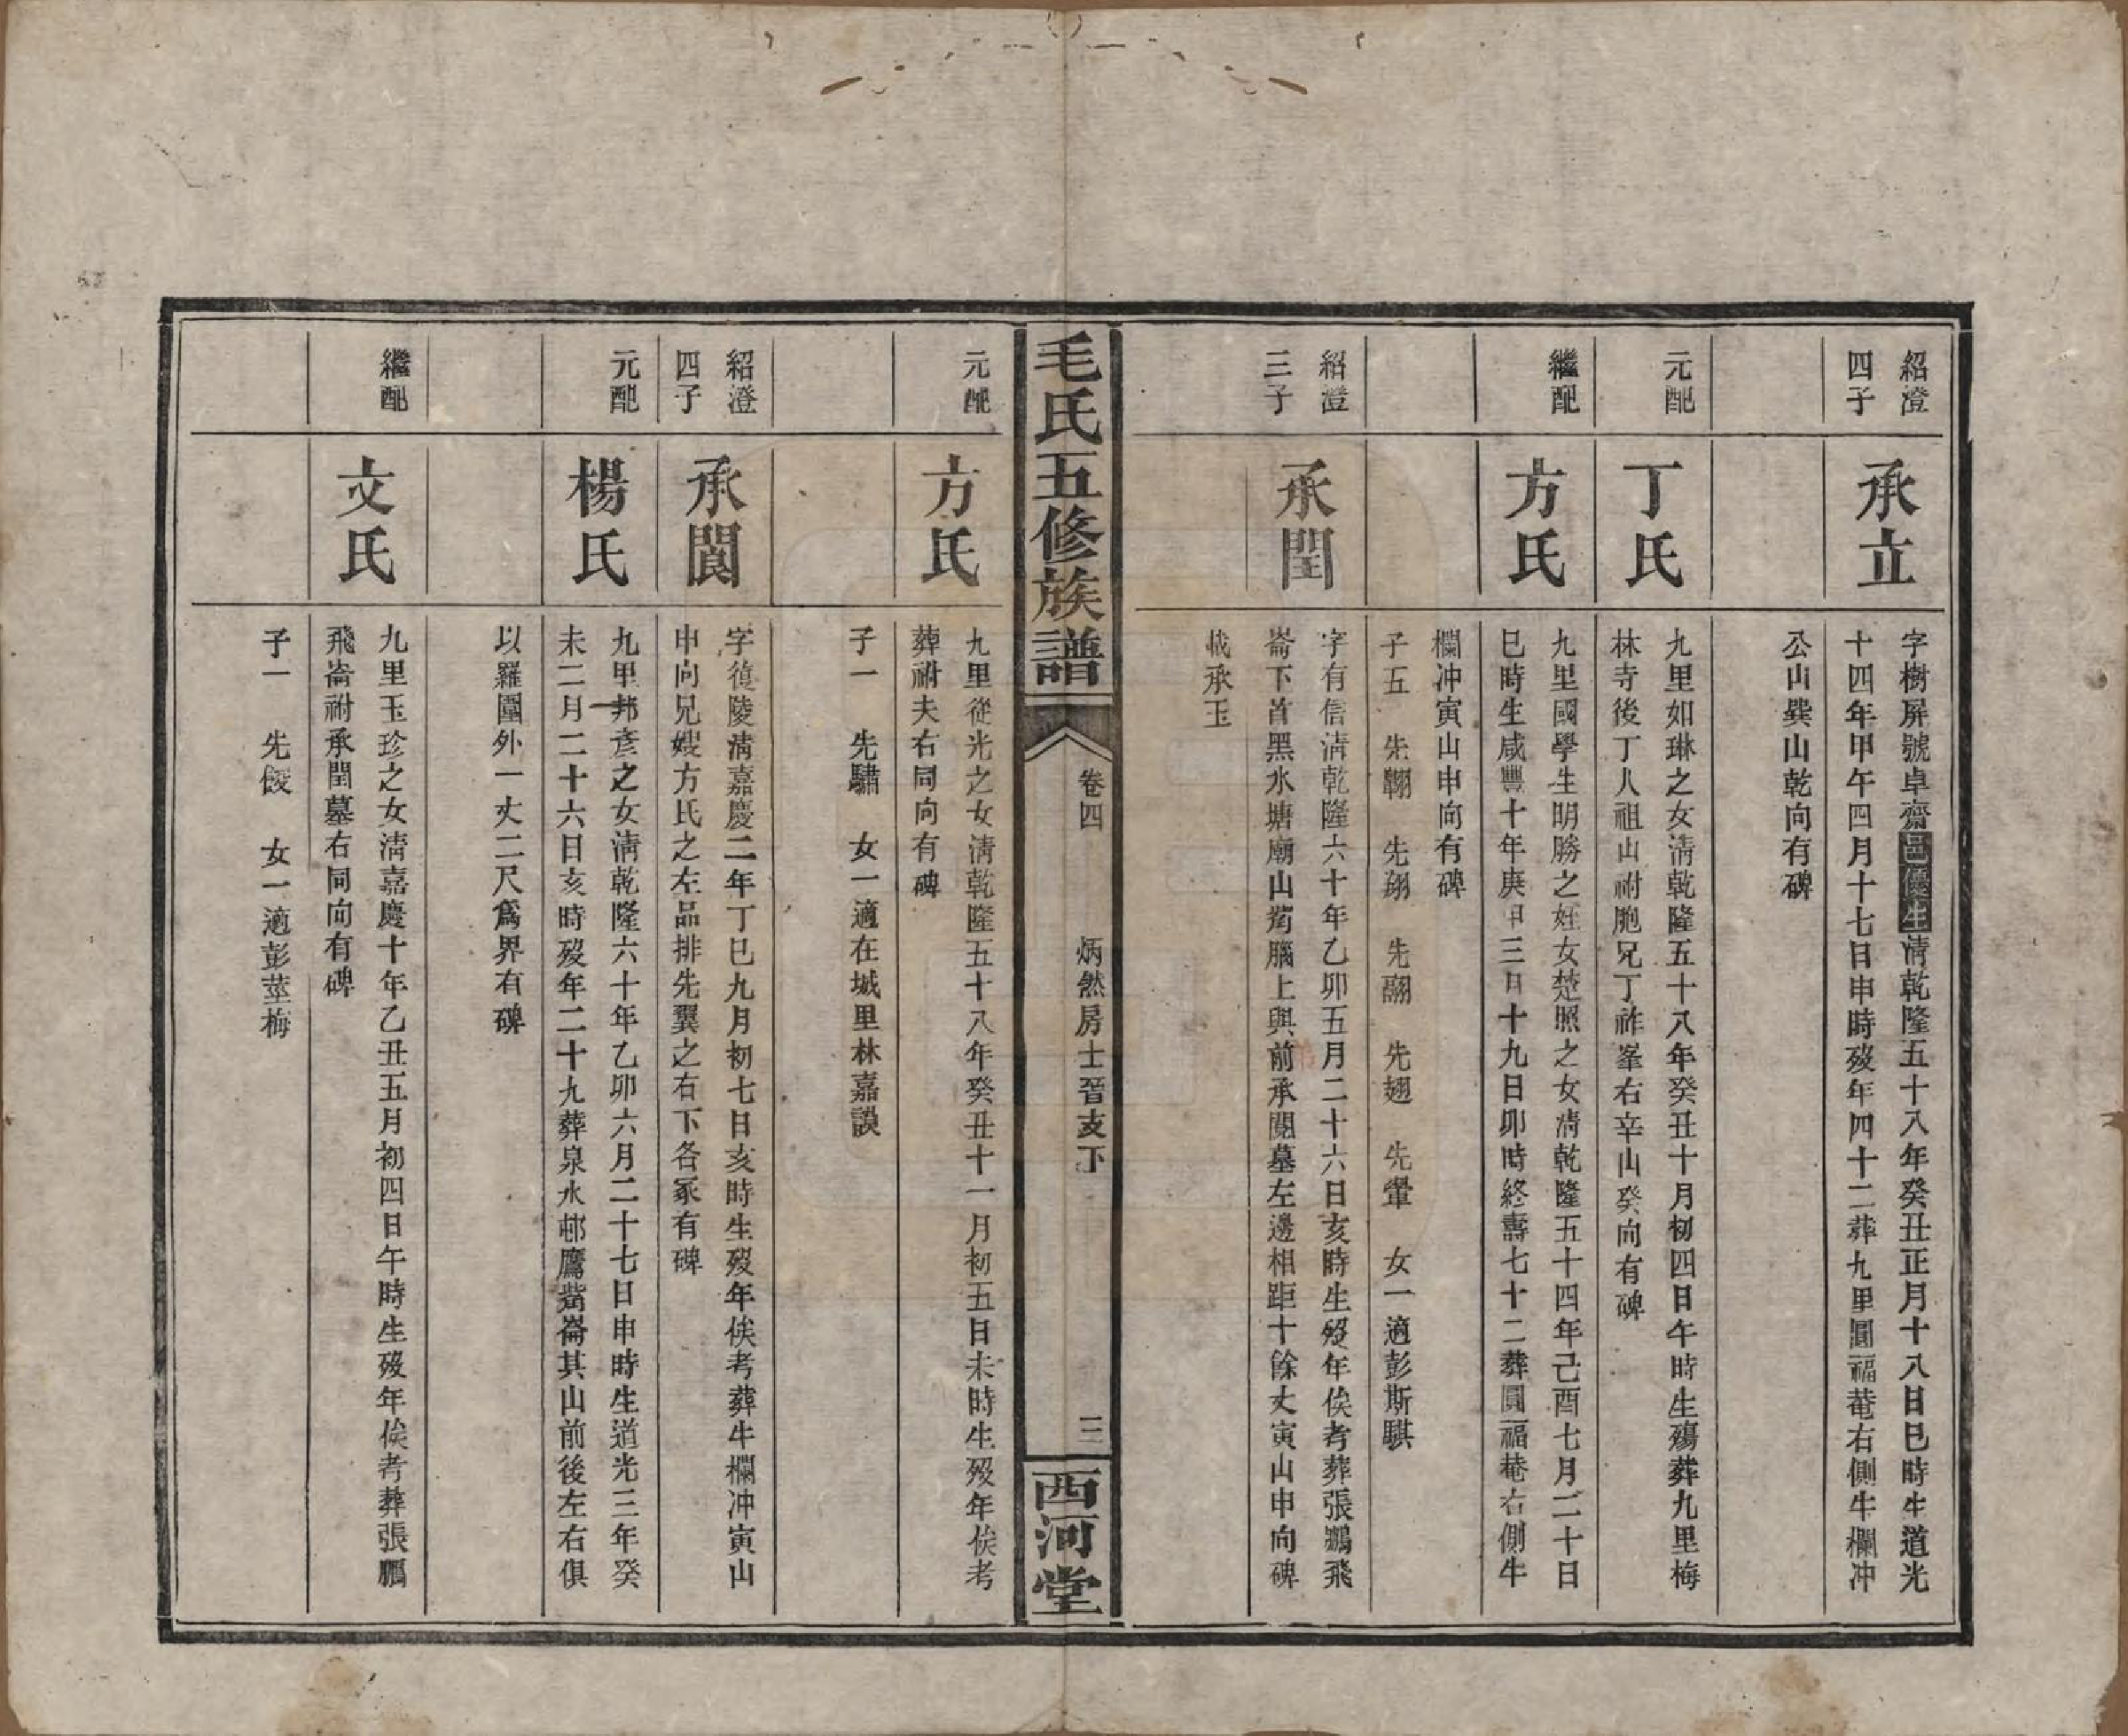 紹澄
四子
承立
字樹屏號卓齋邑優生清乾隆五十八年癸丑正月十八日巳時生道光
十四年甲午四月十七日申時歿年四十二葬九里圓福菴右側牛欄冲
公山巽山乾向有碑
元配
丁氏
九里如琳之女清乾隆五十八年癸丑十月初四日午時生殤葬九里梅
林寺後丁人祖山祔胞兄丁祚峯右辛山癸向有碑
繼配
方氏
九里國學生明勝之姪女楚照之女清乾隆五十四年己酉七月二十日
巳時生咸豐十年庚申三月十九日卯時終壽七十二葬圓福菴右側牛
欄冲寅山申向有碑
子五 先翺 先翔 先翮 先翅 先翬 女一適彭斯騏
紹澄
三子
承閏
字有信清乾隆六十年乙卯五月二十六日亥時生歿年俟考葬張鵬飛
崙下首黑水塘廟山腦上與前承閱墓左邊相距十餘丈寅山申向碑
載承玉
毛氏五修族譜
卷四
炳然房士晉支下
三
西河堂
元配
方氏
九里從光之女清乾隆五十八年癸丑十一月初五日未時生歿年俟考
葬祔夫右同向有碑
子一 先驌 女一適在城里林嘉謨
紹澄
四子
承閬
字復陵清嘉慶二年丁巳九月初七日亥時生歿年俟考葬牛欄冲寅山
申向兄嫂方氏之左品排先翼之右下各冢有碑
元配
楊氏
九甲邦彥之女清乾隆六十年乙卯六月二十七日申時生道光三年癸
未二月二十六日亥時歿年二十九葬泉水邨鷹嘴崙其山前後左右俱
以羅圍外一丈二尺爲界有碑
繼配
文氏
九里玉珍之女清嘉慶十年乙丑五月初四日午時生歿年俟考葬張鵬
飛崙祔承閏墓右同向有碑
子一 先 女一適彭莖梅